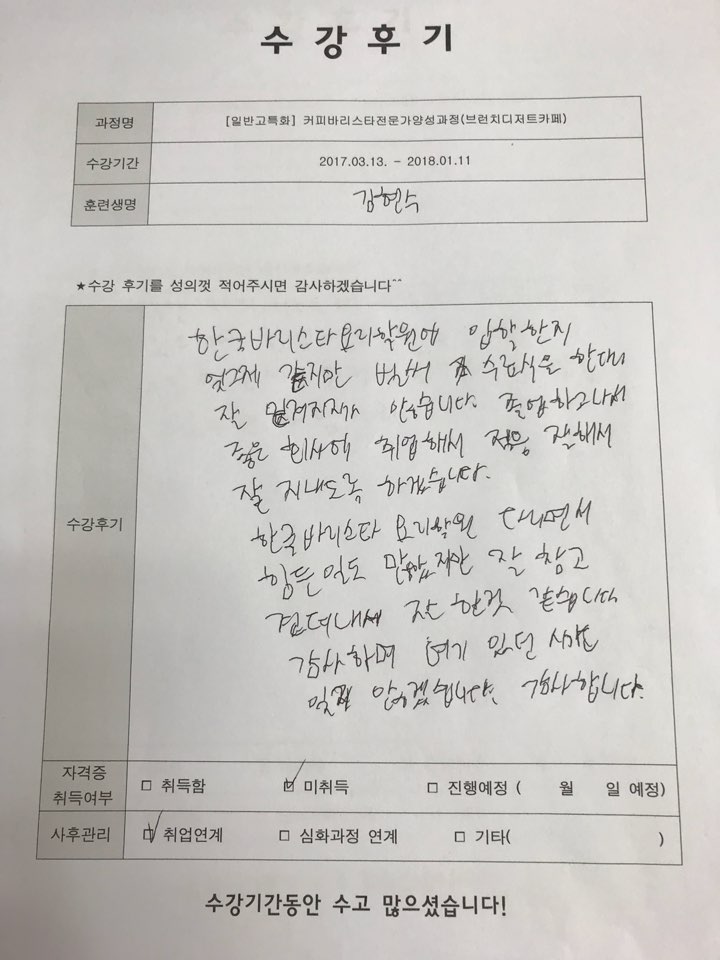 수강후기
과정명 [일반고특화] 커피바리스타전문가양성과정(브런치디저트카페)
수강기간 2017.03.13. - 2018.01.11
훈련생명 김현수
★수강 후기를 성의껏 적어주시면 감사하겠습니다^^
수강후기
한국바리스타요리학원에 입학한지
엊그제 같지만 벌써 수료식을 한다니
잘 믿겨지지가 않습니다. 졸업하고나서
좋은 회사에 취업해서 적응 잘해서
잘 지내도록 하겠습니다.
한국바리스타 요리학원 다니면서
힘든일도 많았지만 잘 참고
견뎌내서 잘 한것 같습니다
감사하며 여기 있던 시간
않겠습니다. 감사합니다.
자격증
취득여부 □ 취득함 □ 미취득 □ 진행예정 ( 월 일 예정)
사후관리 □ 취업연계 □ 심화과정 연계 □ 기타( )
수강기간동안 수고 많으셨습니다!